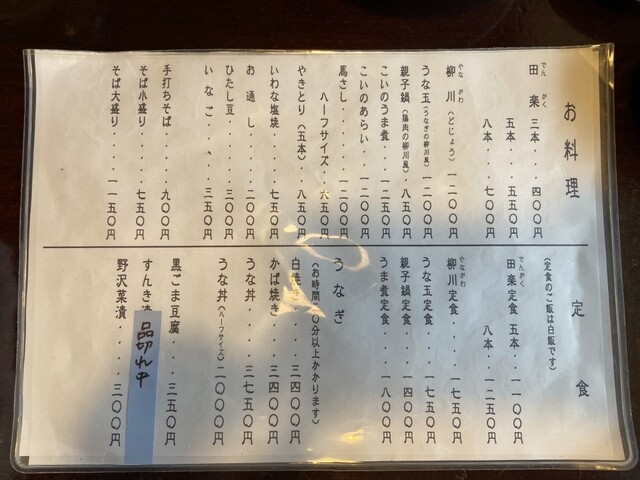 お料理
でんがく
田楽 三本・・・四〇〇円
五本・・・五五〇円
八本・・・七〇〇円
やながわ
柳川（どじょう）一二〇〇円
うな玉（うなぎの柳川風）一二〇〇円
親子鍋（鶏肉の柳川風）八五〇円
こいのうま煮・・一二五〇円
こいのあらい・・一二〇〇円
馬さし・・・・・一二〇〇円
ハーフサイズ・・六五〇円
やきとり（五本）・・八五〇円
いわな塩焼・・・・七五〇円
お通し・・・・・二〇〇円
ひたし豆・・・・三〇〇円
いなご・・・・三五〇円
手打ちそば・・・・九〇〇円
そば小盛り・・・・七五〇円
そば大盛り・・・・一一五〇円
定食
（定食のご飯は白飯です）
でんがく
田楽定食 五本・・一一〇〇円
八本・・一二五〇円
やながわ
柳川定食・・・・一七五〇円
うな玉定食・・・一七五〇円
親子鍋定食・・・一四〇〇円
うま煮定食・・・一八〇〇円
うなぎ
（お時間二〇分以上かかります）
白焼き・・・・三四〇〇円
かば焼き・・・三四〇〇円
うな丼・・・・三七五〇円
うな丼（ハーフサイズ）二〇〇〇円
黒ごま豆腐・・・三五〇円
すんき漬
品切れ中
円
野沢菜漬・・・・三〇〇円